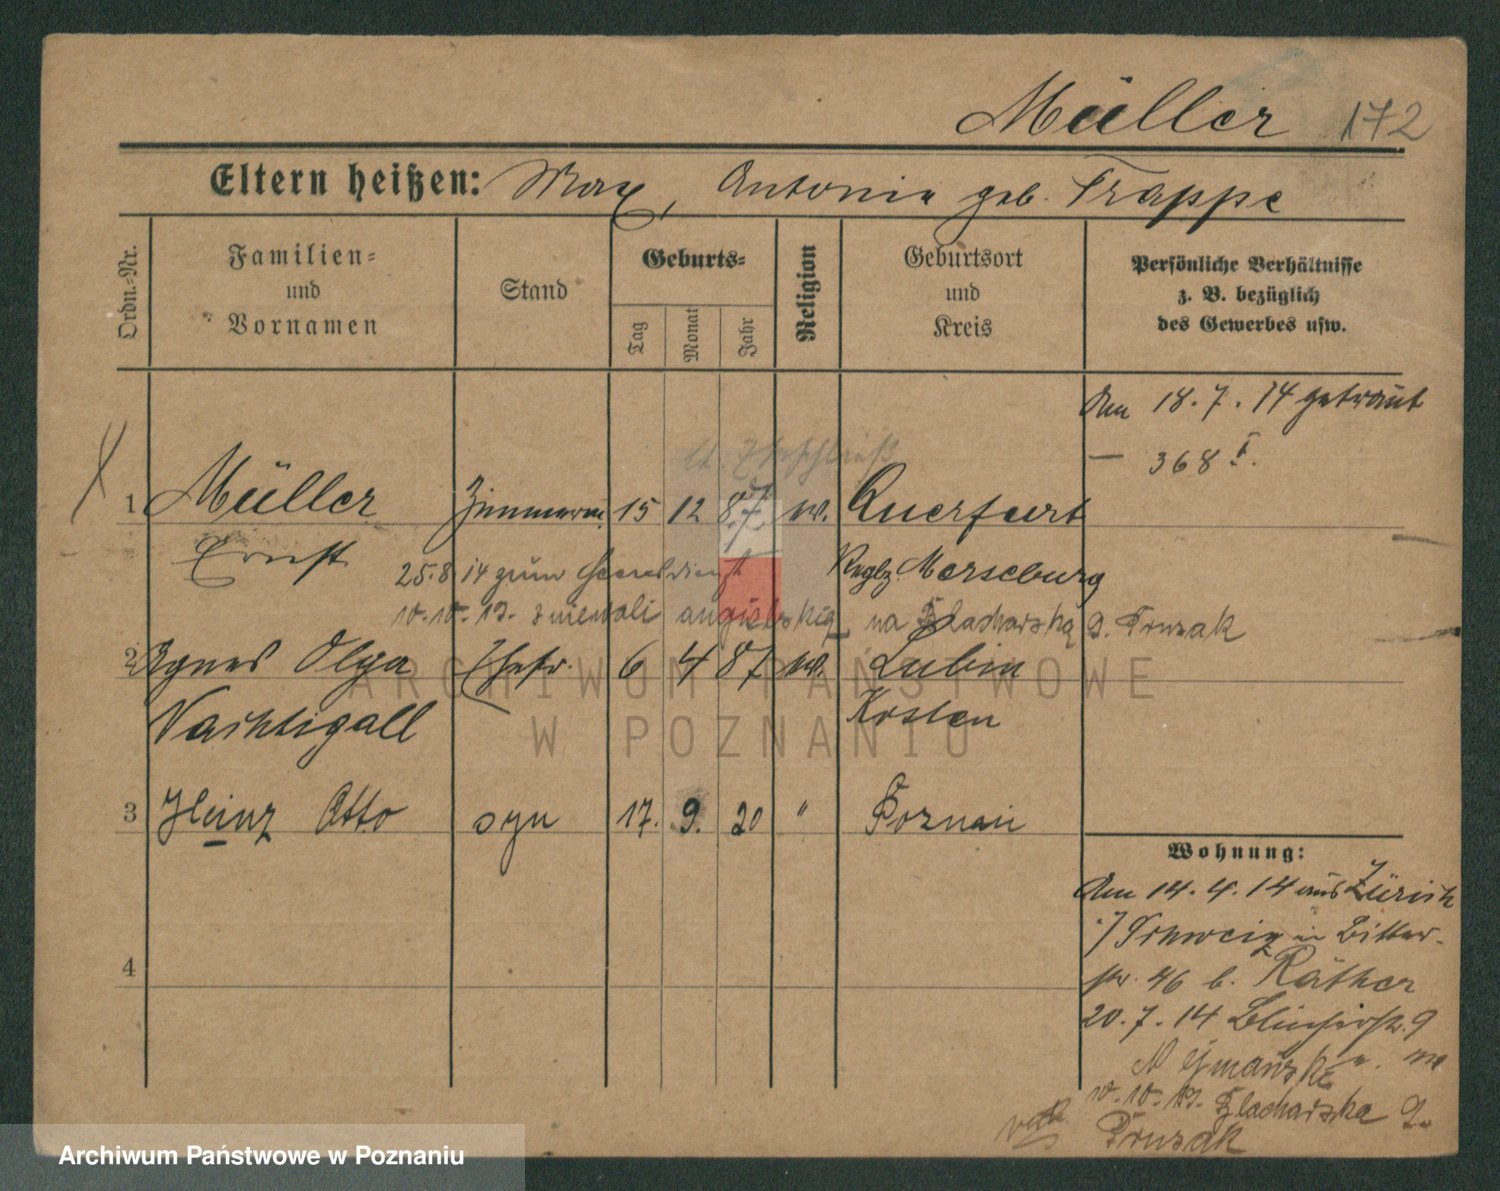 Müller 172
Eltern heißen: Max, Antonie geb. Trappe
Ordn.-Nr.
Familien=
und
Vornamen
Stand
Geburts=
Tag
Monat
Jahr
Religion
Geburtsort
und
Kreis
Persönliche Verhältnisse
z. B. bezüglich
des Gewerbes usw.
Am 18.7.14 getraut
— 368 I.
1 Müller Zimmerm. 15 12 87 ev. Querfurt
Ernst Regbz. Merseburg
25.8.14 zum Heeresdienst
na 9. Pruzak
2 Agnes Olga Ehefr. 6 4 87 ev. Lubin
Nachtigall Kosten
3 Heinz Otto syn 17. 9. 20 " Poznań
4
Wohnung:
Am 14.4.14 aus Zürich
Schweiz in Bitter-
str. 46 b. Räther
20.7.14 Blücherstr. 9
9.
Pruzak
ARCHIWUM PAŃSTWOWE
W POZNANIU
Archiwum Państwowe w Poznaniu